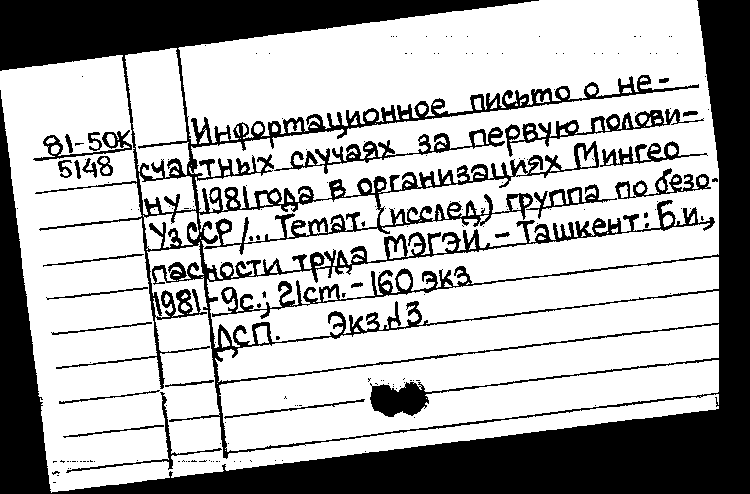 81-50К
5148
Информационное письмо о не-
счастных случаях за первую полови-
ну 1981 года в организациях Мингео
УзССР /... Темат. (исслед.) группа по безо-
пасности труда МЭГЭИ. - Ташкент: Б.и.,
1981. - 9с.; 21ст. - 160 экз
ДСП. Экз.№3.